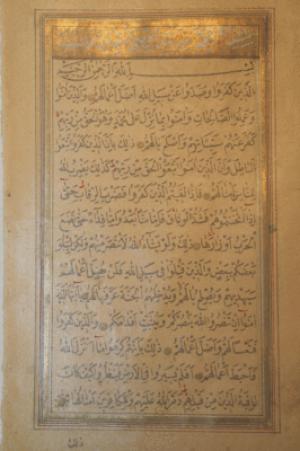 بسم الله الرحمن الرحيم
الذين كفروا وصدوا عن سبيل الله اضل اعمالهم والذين امنوا
وعملوا الصالحات وامنوا بما نزل على محمد وهو الحق من ربهم
كفر عنهم سيئاتهم واصلح بالهم ذلك بان الذين كفروا اتبعوا
الباطل وان الذين امنوا اتبعوا الحق من ربهم كذلك يضرب الله
للناس امثالهم فاذا لقيتم الذين كفروا فضرب الرقاب حتى
اذا اثخنتموهم فشدوا الوثاق فاما منا بعد واما فداء حتى تضع
الحرب اوزارها ذلك ولو يشاء الله لانتصر منهم ولكن ليبلو
بعضكم ببعض والذين قتلوا في سبيل الله فلن يضل اعمالهم
سيهديهم ويصلح بالهم ويدخلهم الجنة عرفها لهم يا ايها الذين
امنوا ان تنصروا الله ينصركم ويثبت اقدامكم والذين كفروا
فتعسا لهم واضل اعمالهم ذلك بانهم كرهوا ما انزل الله
فاحبط اعمالهم افلم يسيروا في الارض فينظروا كيف كان
عاقبة الذين من قبلهم دمر الله عليهم وللكافرين امثالها
ذلك